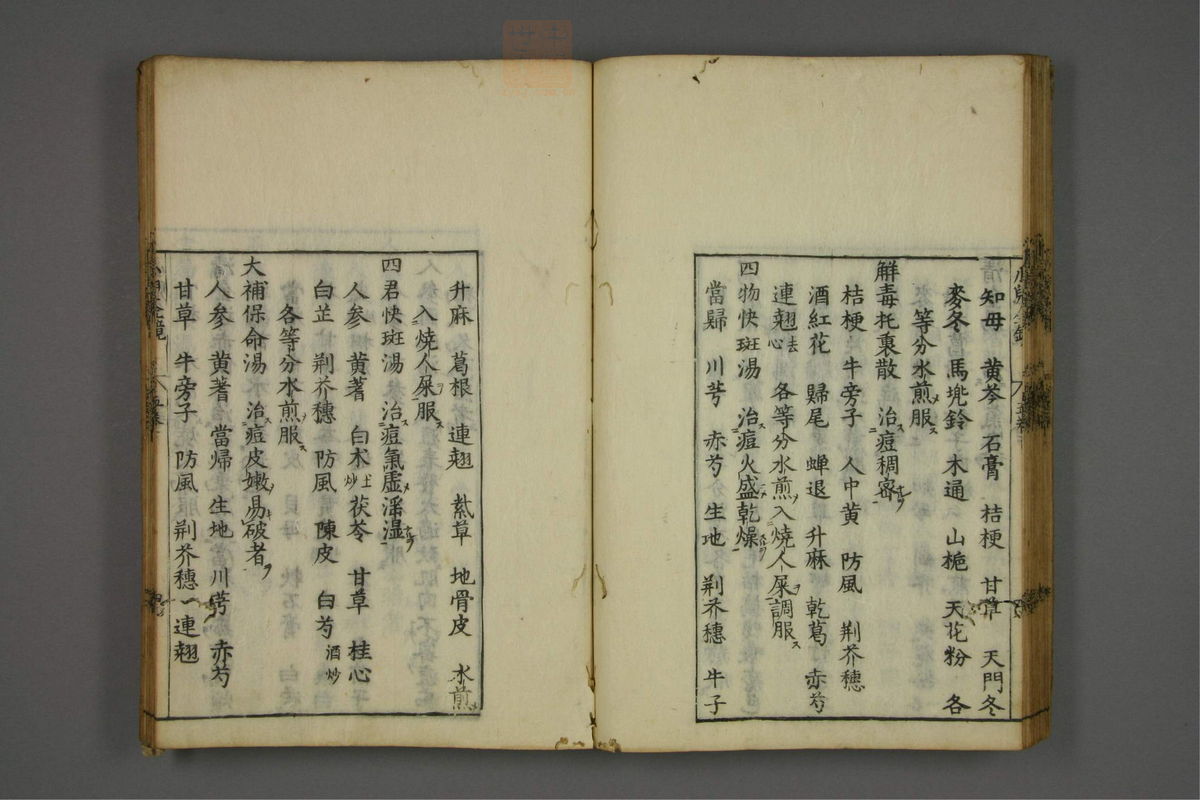 知母　黄芩　石膏　桔梗　甘草　天門冬
麥冬　馬兜鈴　木通　山梔　天花粉　各
等分水煎服ス
解毒托裏散　治ス痘稠密
桔梗　牛旁子　人中黄　防風　荆芥穗
酒紅花　歸尾　蟬退　升麻　乾葛　赤芍
連翹去心　各等分水煎入燒人屎調服ス
四物快斑湯　治ス痘火盛乾燥
當歸　川芎　赤芍　生地　荆芥穗　牛子
升麻　葛根　連翹　紫草　地骨皮　水煎
入燒人屎服ス
四君快斑湯　治ス痘氣虛淫濕
人參　黄蓍　白术土炒　茯苓　甘草　桂心
白芷　荆芥穗　防風　陳皮　白芍酒炒
各等分水煎服ス
大補保命湯　治ス痘皮嫩易破者
人參　黄蓍　當帰　生地　川芎　赤芍
甘草　牛旁子　防風　荆芥穗　連翹